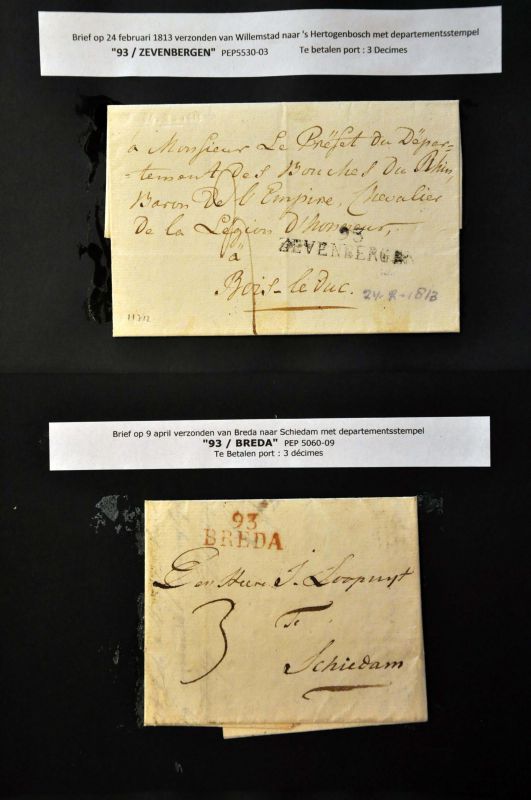 Brief op 24 februari 1813 verzonden van Willemstad naar 's Hertogenbosch met departementsstempel
"93 / ZEVENBERGEN" PEP5530-03 Te betalen port : 3 Decimes
à Monsieur Le Préfet du Dépar-
tement des Bouches du Rhin,
Baron de l'Empire, Chevalier
De la Légion d'honneur,
93
ZEVENBERGEN
à
Bois-le Duc.
Brief op 9 april verzonden van Breda naar Schiedam met departementsstempel
"93 / BREDA" PEP 5060-09
Te Betalen port : 3 décimes
93
BREDA
Den Heere J. Loopuyt
3
Te
Schiedam